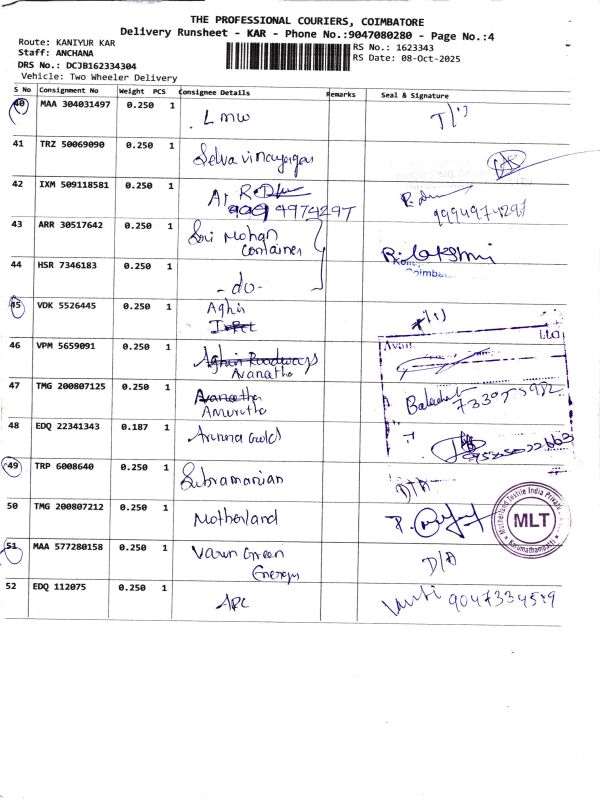 THE PROFESSIONAL COURIERS, COIMBATORE
Delivery Runsheet - KAR - Phone No.:9047080280 - Page No.:4
Route: KANIYUR KAR
Staff: ANCHANA
DRS No.: DCJB162334304
Vehicle: Two Wheeler Delivery
RS No.: 1623343
RS Date: 08-Oct-2025
S No Consignment No Weight PCS Consignee Details Remarks Seal & Signature
40 MAA 304031497 0.250 1 LMW
41 TRZ 50069090 0.250 1 Selva vinayagar
42 IXM 509118581 0.250 1 9994974297
9994974297
43 ARR 30517642 0.250 1 Sri Mohan
Container
R. Lakshmi
44 HSR 7346183 0.250 1 -do-
Coimbat
45 VDK 5526445 0.250 1
46 VPM 5659091 0.250 1 Aghin Roadways
47 TMG 200807125 0.250 1
Amurutha
48 EDQ 22341343 0.187 1 Aruna Gold
49 TRP 6008640 0.250 1 Subramanian D/A
50 TMG 200807212 0.250 1 Motherland
Motherland Textile India Private
MLT
Karumathampatti
51 MAA 577280158 0.250 1 Varun Green
Energy
D/A
52 EDQ 112075 0.250 1 APL